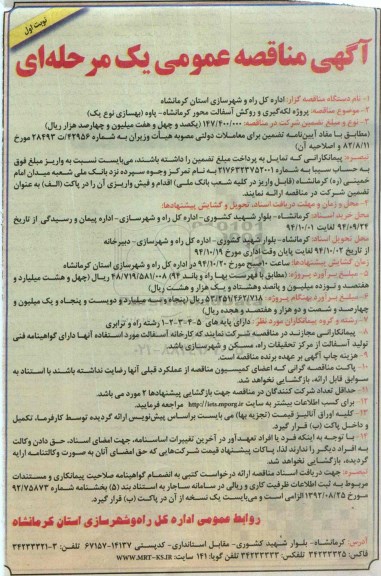 نوبت اول
آگهی مناقصه عمومی یک مرحله‌ای
۱- نام دستگاه مناقصه گزار: اداره کل راه و شهرسازی استان کرمانشاه
۲- موضوع مناقصه: پروژه لکه‌گیری و روکش آسفالت محور کرمانشاه- پاوه (بهسازی نوع یک)
۳- نوع و مبلغ تضمین شرکت در مناقصه: ۱۴۷/۴۰۰/۰۰۰ (یکصد و چهل و هفت میلیون و چهارصد هزار ریال)
(مطابق با مفاد آیین‌نامه تضمین برای معاملات دولتی مصوبه هیأت وزیران به شماره ۴۲۹۵۶/ت ۲۸۴۹۳ مورخ
۸۲/۸/۱۱ و اصلاحیه آن)
تبصره: پیمانکارانی که تمایل به پرداخت مبلغ تضمین را داشته باشند، می‌بایست نسبت به واریز مبلغ فوق
به حساب سیبا به شماره ۲۱۷۶۴۳۲۷۵۲۰۰۱ به نام تمرکز وجوه سپرده نزد بانک ملی شعبه میدان امام
خمینی (ره) کرمانشاه (قابل واریز در کلیه شعب بانک ملی) اقدام و فیش واریزی آن را در پاکت (الف) به عنوان
تضمین شرکت در مناقصه ارائه نمایند.
۴- محل و زمان و مهلت دریافت اسناد، تحویل و گشایش پیشنهادها:
محل خرید اسناد: کرمانشاه- بلوار شهید کشوری- اداره کل راه و شهرسازی- اداره پیمان و رسیدگی از تاریخ
۹۴/۰۹/۲۴ لغایت ۹۴/۱۰/۰۱
محل تحویل اسناد: کرمانشاه- بلوار شهید کشوری- اداره کل راه و شهرسازی- دبیرخانه
از تاریخ ۹۴/۱۰/۰۲ لغایت پایان وقت اداری مورخ ۹۴/۱۰/۱۹
زمان گشایش پیشنهادها: ساعت ۱۰ صبح مورخ ۹۴/۱۰/۲۰ در اداره کل راه و شهرسازی استان کرمانشاه
۵- مبلغ برآورد پروژه: (مطابق با فهرست بها راه و باند ۹۴) ۴۸/۷۱۹/۵۸۱/۰۰۸ ریال (چهل و هشت میلیارد و
هفتصد و نوزده میلیون و پانصد و هشتاد و یک هزار و هشت ریال)
۶- مبلغ برآورد بهنگام پروژه: ۵۳/۲۵۱/۴۶۲/۷۱۸ ریال (پنجاه و سه میلیارد و دویست و پنجاه و یک میلیون و
چهارصد و شصت و دو هزار و هفتصد و هجده ریال)
۷- رشته و گروه پیمانکاران مورد نظر: دارای پایه های ۵-۴-۳-۲-۱ رشته راه و ترابری
۸- پیمانکارانی مجازند در مناقصه شرکت نمایند که کارخانه آسفالت مورد استفاده آنها دارای گواهینامه فنی
تولید آسفالت از مرکز تحقیقات راه، مسکن و شهرسازی باشد.
۹- هزینه چاپ آگهی بر عهده برنده مناقصه است.
۱۰- پاکت مناقصه گرانی که اعضای کمیسیون مناقصه از عملکرد قبلی آنها رضایت نداشته باشند با استناد به
سوابق قابل ارائه، بازگشایی نخواهد شد.
۱۱- حداقل تعداد شرکت کنندگان در مناقصه جهت بازگشایی پیشنهادها ۲ مورد می باشد.
۱۲- برای کسب اطلاعات بیشتر به سایت http://iets.mporg.ir مراجعه فرمایید.
۱۳- کلیه اوراق آنالیز قیمت (تجزیه بها) می بایست براساس پیش‌نویس ارائه گردیده توسط کارفرما، تکمیل
و داخل پاکت (ب) قرار گیرد.
۱۴- با توجه به اینکه فرد یا افراد تعهدآور در آخرین تغییرات اساسنامه، جهت امضای اسناد، حق دادن وکالت
به افراد دیگر را ندارند لذا، پاکات پیشنهاد قیمت شرکت‌هایی که حق امضای آنان به صورت وکالتنامه ارایه
گردیده، بازگشایی نخواهد شد.
تبصره: جهت دریافت اسناد مناقصه ارائه درخواست کتبی به انضمام گواهینامه صلاحیت پیمانکاری و مستندات
مربوط به ثبت اطلاعات ظرفیت کاری و ریالی در سامانه ساجار به استناد بند (۵) بخشنامه شماره ۹۲/۷۵۸۷۳
مورخ ۱۳۹۲/۰۸/۲۵ الزامی است و می‌بایست یک نسخه از آن در پاکت (ب) قرار گیرد.
روابط عمومی اداره کل راه‌وشهرسازی استان کرمانشاه
آدرس: کرمانشاه- بلوار شهید کشوری- مقابل استانداری- کدپستی ۱۴۱۳۷-۶۷۱۵۷ تلفن: ۳-۳۴۲۳۳۳۲۱
فاکس: ۳۴۲۳۳۳۲۵ تلفکس: ۳۴۲۳۳۳۳۳ تلفن گویا: ۱۴۱ سایت: WWW.MBT-KS.IR